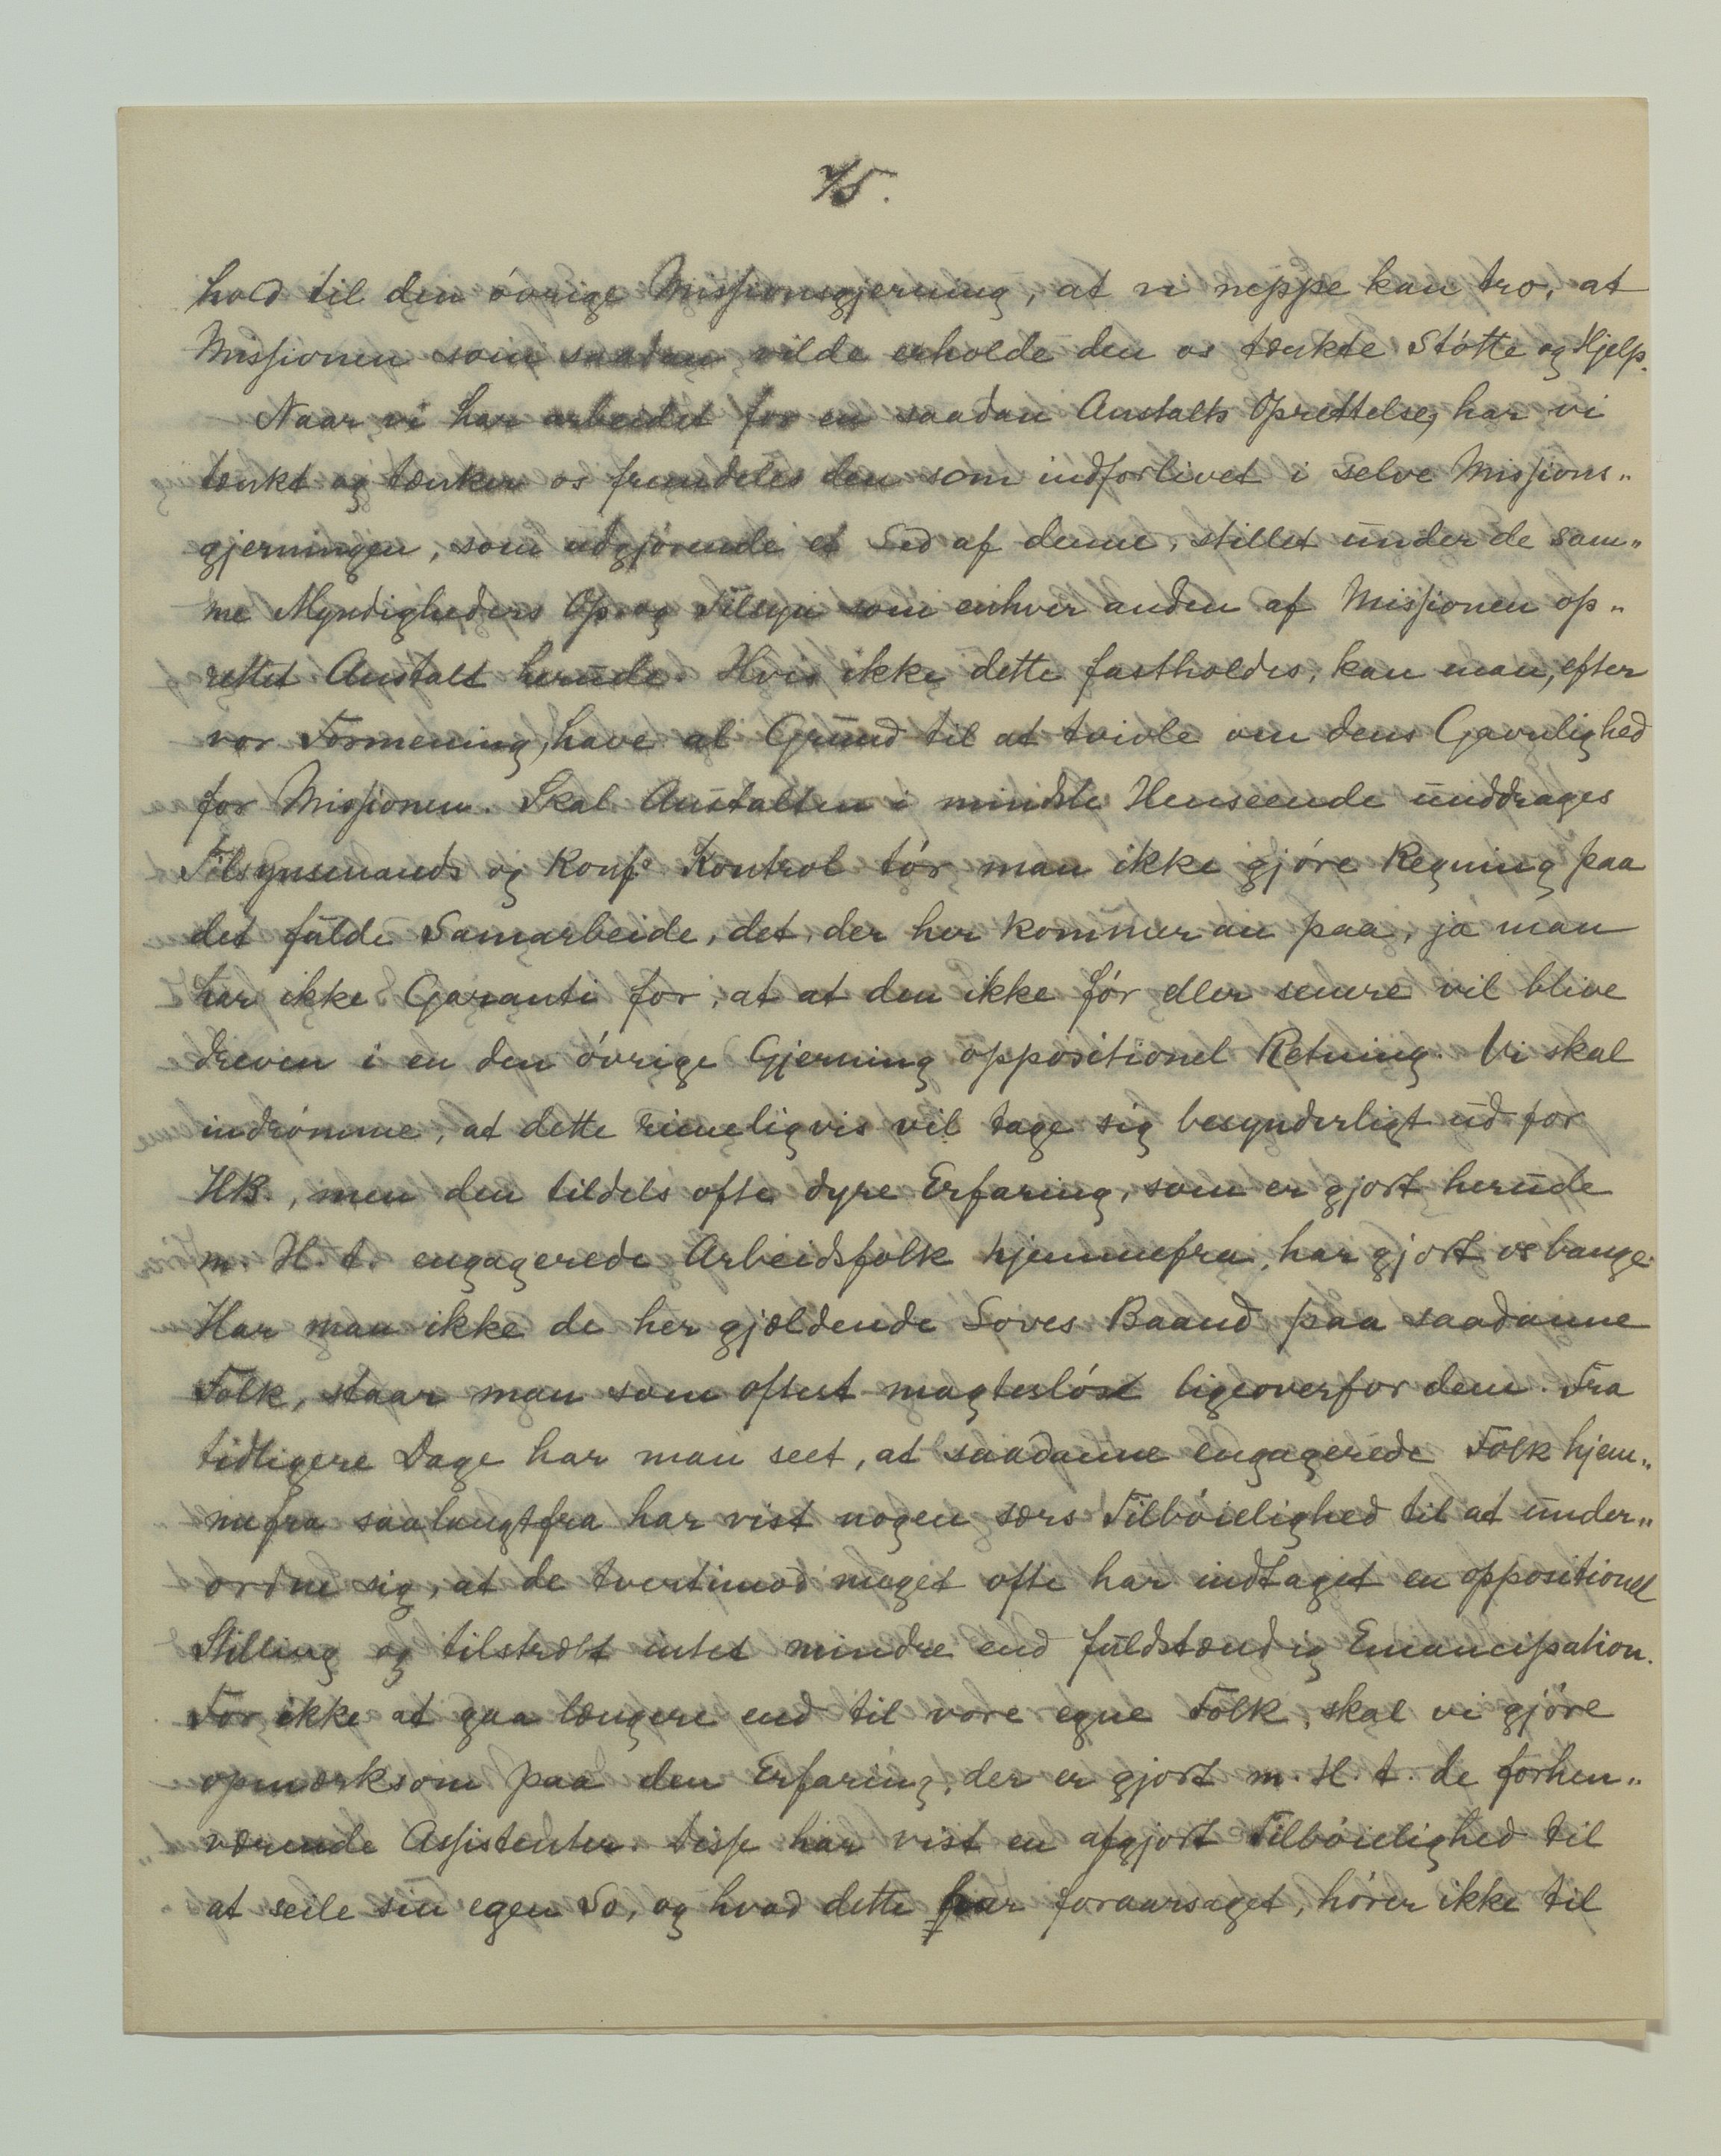 45.
hold til den øvrige Missionsgjerning, at vi neppe kan tro, at
Missionen som saadan vilde erholde den os tænkte Støtte og Hjelp.
Naar vi har arbeidet for en saadan Anstalts Oprettelse, har vi
tænkt og tænker os fremdeles den som indforlivet i selve Missions„
gjerningen, som udgjørende et Led af denne, stillet under de sam„
me Myndigheders Op. og Tilsyn som enhver anden af Missionen op„
rettet Anstalt herude. Hvis ikke dette fastholdes, kan man, efter
vor Formening, have al Grund til at tvivle om dens Gavnlighed
for Missionen. Skal Anstalten i mindste Henseende unddrages
Tilsynsmands og Konfs Kontrol tør man ikke gjøre Regning paa
det fulde Samarbeide, det, der her kommer an paa, ja man
har ikke Garanti for, at at den ikke før eller senere vil blive
dreven i en den øvrige Gjerning oppositionel Retning. Vi skal
indrømme, at dette rimeligvis vil tage sig besynderligt ud for
HB., men den tildels ofte dyre Erfaring, som er gjort herude
m. H. t. engagerede Arbeidsfolk hjemmefra, har gjort os bange.
Har man ikke de her gjældende Loves Baand paa saadanne
Folk, staar man som oftest magtesløst ligeoverfor dem. Fra
tidligere Dage har man seet, at saadanne engagerede Folk hjem„
mefra saalangtfra har vist nogen særs Tilbøielighed til at under„
ordne sig, at de tvertimod meget ofte har indtaget en oppositionel
Stilling og tilstræbt intet mindre end fuldstændig Emancipation.
For ikke at gaa længere end til vore egne Folk, skal vi gjøre
opmærksom paa den Erfaring, der er gjort m. H. t. de forhen„
værende Assistenter. Disse har vist en afgjort Tilbøielighed til
at seile sin egen So, og hvad dette har foraarsaget, hører ikke til